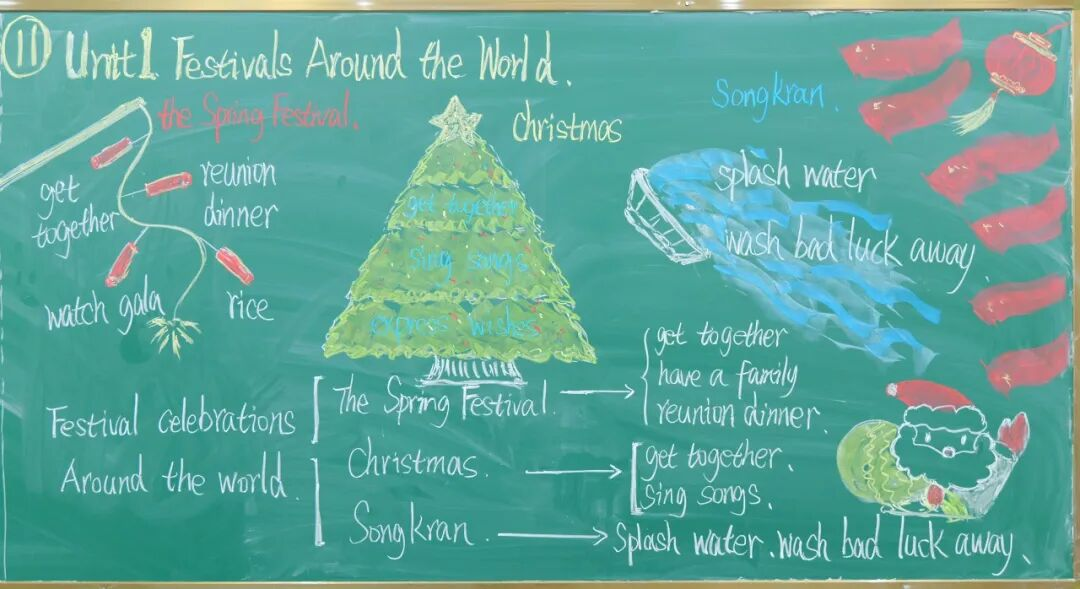 11 Unit1 Festivals Around the World.
the Spring Festival.
get together
reunion dinner
watch gala
rice
Christmas
get together
sing songs
express wishes
Songkran.
splash water
wash bad luck away.
Festival celebrations
Around the world.
The Spring Festival.
get together
have a family
reunion dinner.
Christmas.
get together.
sing songs.
Songkran.
Splash water.wash bad luck away.